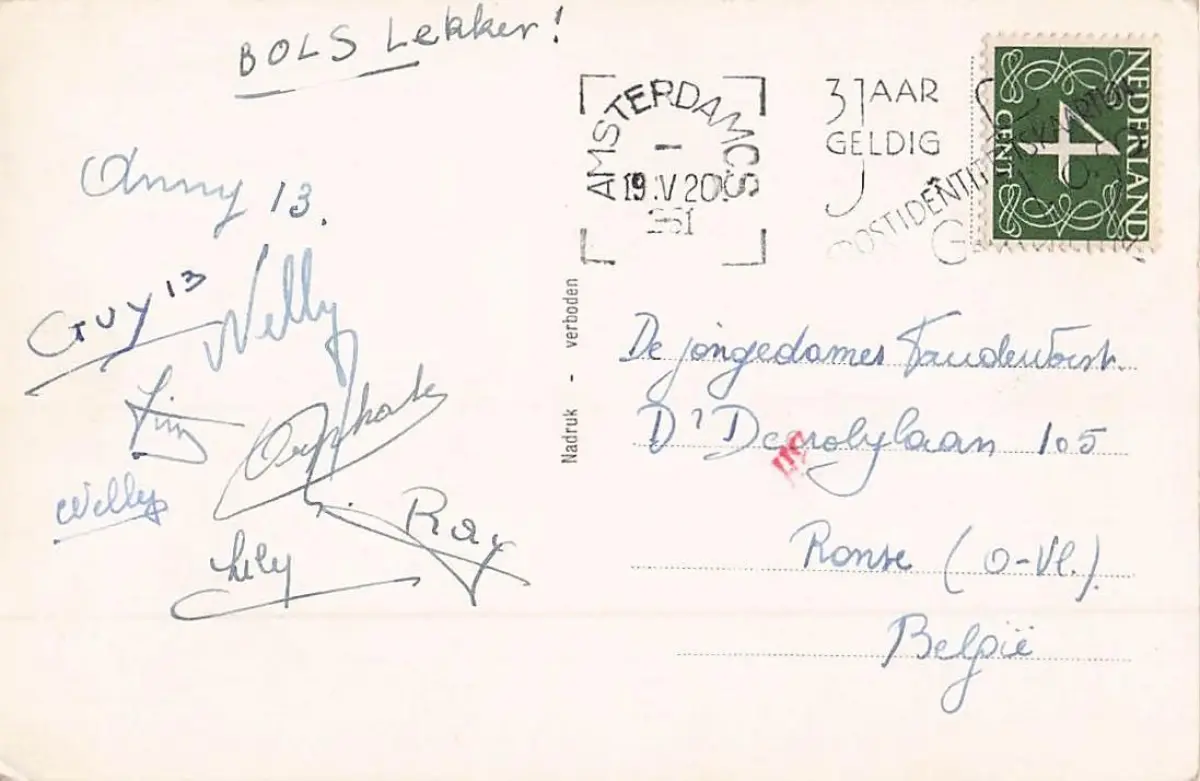 BOLS Lekker!
Anny 13.
GUY 13
Nelly
Willy
Ray
Lily
Nadruk - verboden
AMSTERDAM CS
19.V 20
3 JAAR
GELDIG
POSTIDENTITEITSKAART
NEDERLAND
4
CENT
De jongedames
Dr Deroblylaan 105
Ronse (O-Vl.)
België